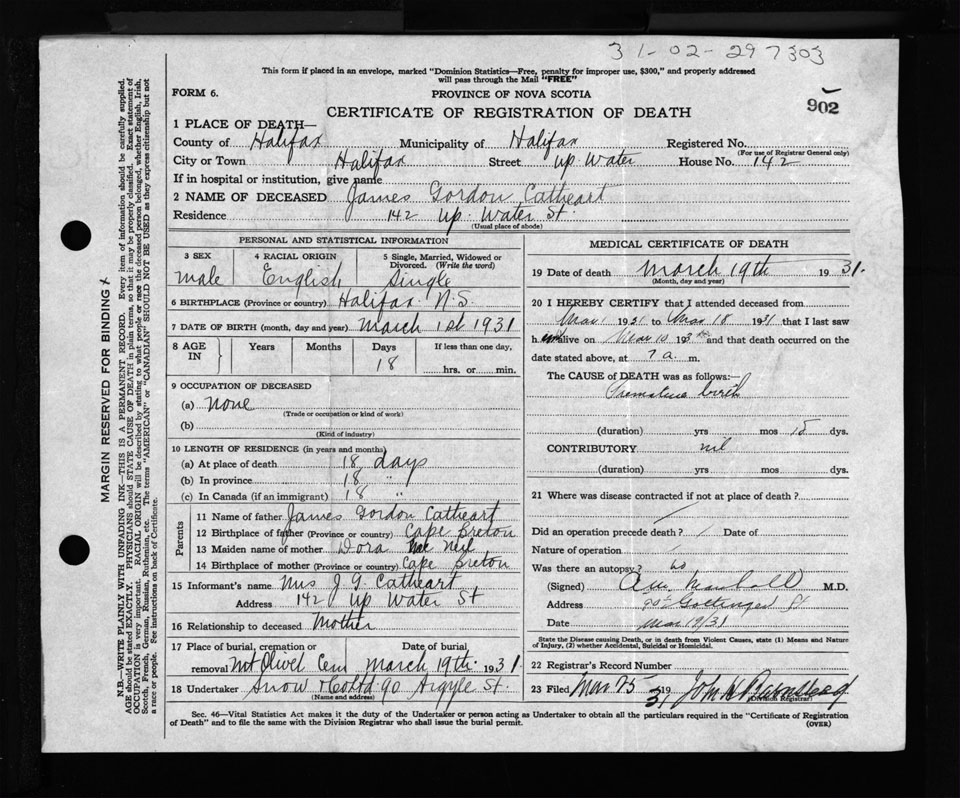 31-02-297303
This form if placed in an envelope, marked "Dominion Statistics—Free, penalty for improper use, $300," and properly addressed
will pass through the Mail "FREE"
FORM 6.
PROVINCE OF NOVA SCOTIA
902
CERTIFICATE OF REGISTRATION OF DEATH
1 PLACE OF DEATH—
County of Halifax Municipality of Halifax Registered No.
(For use of Registrar General only)
City or Town Halifax Street up. Water House No. 142
If in hospital or institution, give name
2 NAME OF DECEASED James Gordon Cathcart
Residence 142 up. Water St.
(Usual place of abode)
PERSONAL AND STATISTICAL INFORMATION
3 SEX 4 RACIAL ORIGIN 5 Single, Married, Widowed or
Divorced. (Write the word)
male English Single
6 BIRTHPLACE (Province or country) Halifax N.S.
7 DATE OF BIRTH (month, day and year) March 1st 1931
8 AGE IN Years Months Days If less than one day,
18 hrs. or min.
9 OCCUPATION OF DECEASED
(a) none
(Trade or occupation or kind of work)
(b)
(Kind of industry)
10 LENGTH OF RESIDENCE (in years and months)
(a) At place of death 18 days
(b) In province 18 "
(c) In Canada (if an immigrant) 18 "
Parents
11 Name of father James Gordon Cathcart
12 Birthplace of father (Province or country) Cape Breton
13 Maiden name of mother Dora Mc Neil
14 Birthplace of mother (Province or country) Cape Breton
15 Informant's name Mrs J. G. Cathcart
Address 142 Up Water St
16 Relationship to deceased Mother
17 Place of burial, cremation or Date of burial
removal Mt Olivet Cem March 19th 1931
18 Undertaker Snow & Co Ltd 90 Argyle St.
(Name and address)
MEDICAL CERTIFICATE OF DEATH
19 Date of death March 19th 1931.
(Month, day and year)
20 I HEREBY CERTIFY that I attended deceased from
Mar 1 1931 to Mar 18 1931 that I last saw
him alive on Mar 193 and that death occurred on the
date stated above, at 7 a. m.
The CAUSE of DEATH was as follows:—
Premature birth
(duration) yrs mos 18 dys.
CONTRIBUTORY nil
(duration) yrs. mos. dys.
21 Where was disease contracted if not at place of death?
Did an operation precede death? Date of
Nature of operation
Was there an autopsy? no
(Signed) M.D.
Address Gottingen St
Date Mar 19/31
State the Disease causing Death, or in death from Violent Causes, state (1) Means and Nature
of Injury, (2) whether Accidental, Suicidal or Homicidal.
22 Registrar's Record Number
23 Filed Mar 25 1931 John H Barnstead
(Division Registrar)
Sec. 46—Vital Statistics Act makes it the duty of the Undertaker or person acting as Undertaker to obtain all the particulars required in the "Certificate of Registration
of Death" and to file the same with the Division Registrar who shall issue the burial permit. (OVER)
MARGIN RESERVED FOR BINDING
N.B.—WRITE PLAINLY WITH UNFADING INK—THIS IS A PERMANENT RECORD. Every item of information should be carefully supplied.
AGE should be stated EXACTLY. PHYSICIANS should STATE CAUSE OF DEATH in plain terms, so that it may be properly classified. Exact statement of
OCCUPATION is very important. RACIAL ORIGIN will be described by stating to what people or race the deceased person belonged, whether English, Irish,
Scotch, French, German, Russian, Ruthenian, etc. The terms "AMERICAN" or "CANADIAN" SHOULD NOT BE USED as they express citizenship but not
a race or people. See instructions on back of Certificate.